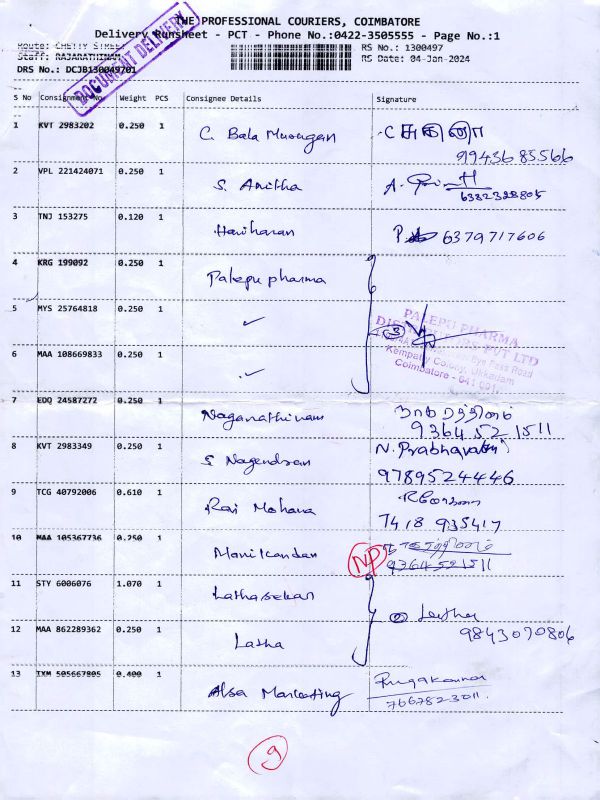 THE PROFESSIONAL COURIERS, COIMBATORE
Delivery Runsheet - PCT - Phone No.:0422-3505555 - Page No.:1
DOCUMENT DELIVERY
Route: CHETTY STREET
RS No.: 1300497
Staff: RAJARATHINAM
RS Date: 04-Jan-2024
DRS No.: DCJB130049701
S No Consignment No. Weight PCS Consignee Details Signature
1 KVT 2983202 0.250 1 C. Bala Murugan
99436 85566
2 VPL 221424071 0.250 1 S. Anitha A.
6382328805
3 TNJ 153275 0.120 1 Hariharan 6379717606
4 KRG 199092 0.250 1 Palepu pharma
5 MYS 25764818 0.250 1
6 MAA 108669833 0.250 1
3
PALEPU PHARMA
PVT LTD
Bye Pass Road
Kempatty Colony, Ukkadam
Coimbatore - 641 001
7 EDQ 24587272 0.250 1 Naganathinam
9364521511
8 KVT 2983349 0.250 1 S Nagendran N. Prabhavathi
9789524446
9 TCG 40792006 0.610 1 Raj Mohana
7418 935417
10 MAA 105367736 0.250 1 Manikandan NP
9364521511
11 STY 6006076 1.070 1 Lathasekar
12 MAA 862289362 0.250 1 Latha Latha
9843070806
13 TXM 505667805 0.400 1 Alsa Marketing
7667823011.
9